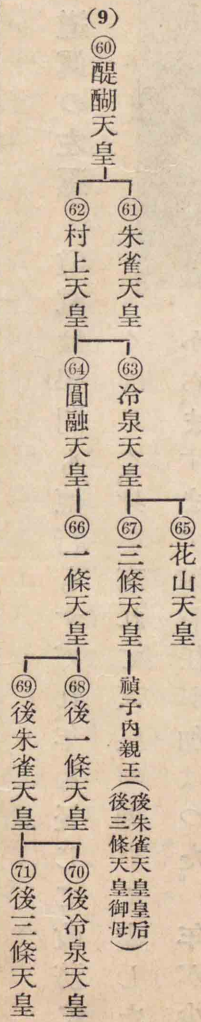 (9)
60 醍醐天皇
61 朱雀天皇
62 村上天皇
63 冷泉天皇
64 圓融天皇
65 花山天皇
67 三條天皇
禎子內親王(後朱雀天皇皇后
後三條天皇御母)
66 一條天皇
68 後一條天皇
69 後朱雀天皇
70 後冷泉天皇
71 後三條天皇